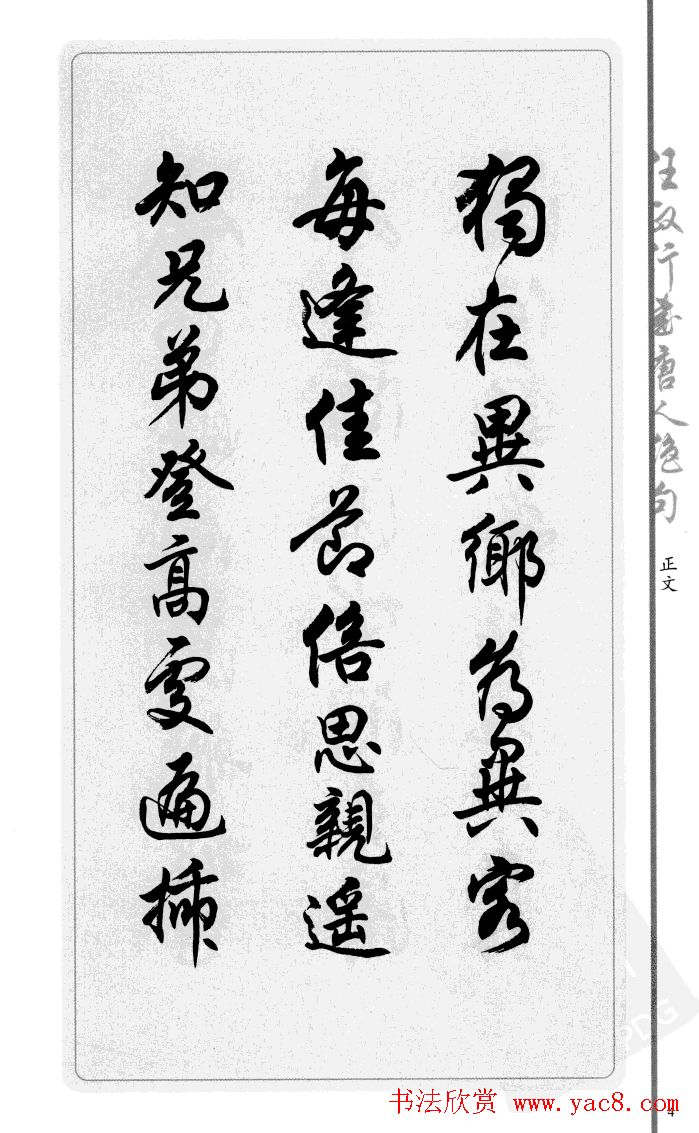 獨在異鄉為異客
每逢佳節倍思親遥
知兄弟登高處遍插
任政行書唐人絶句
正文
书法欣赏 www.yac8.com
4